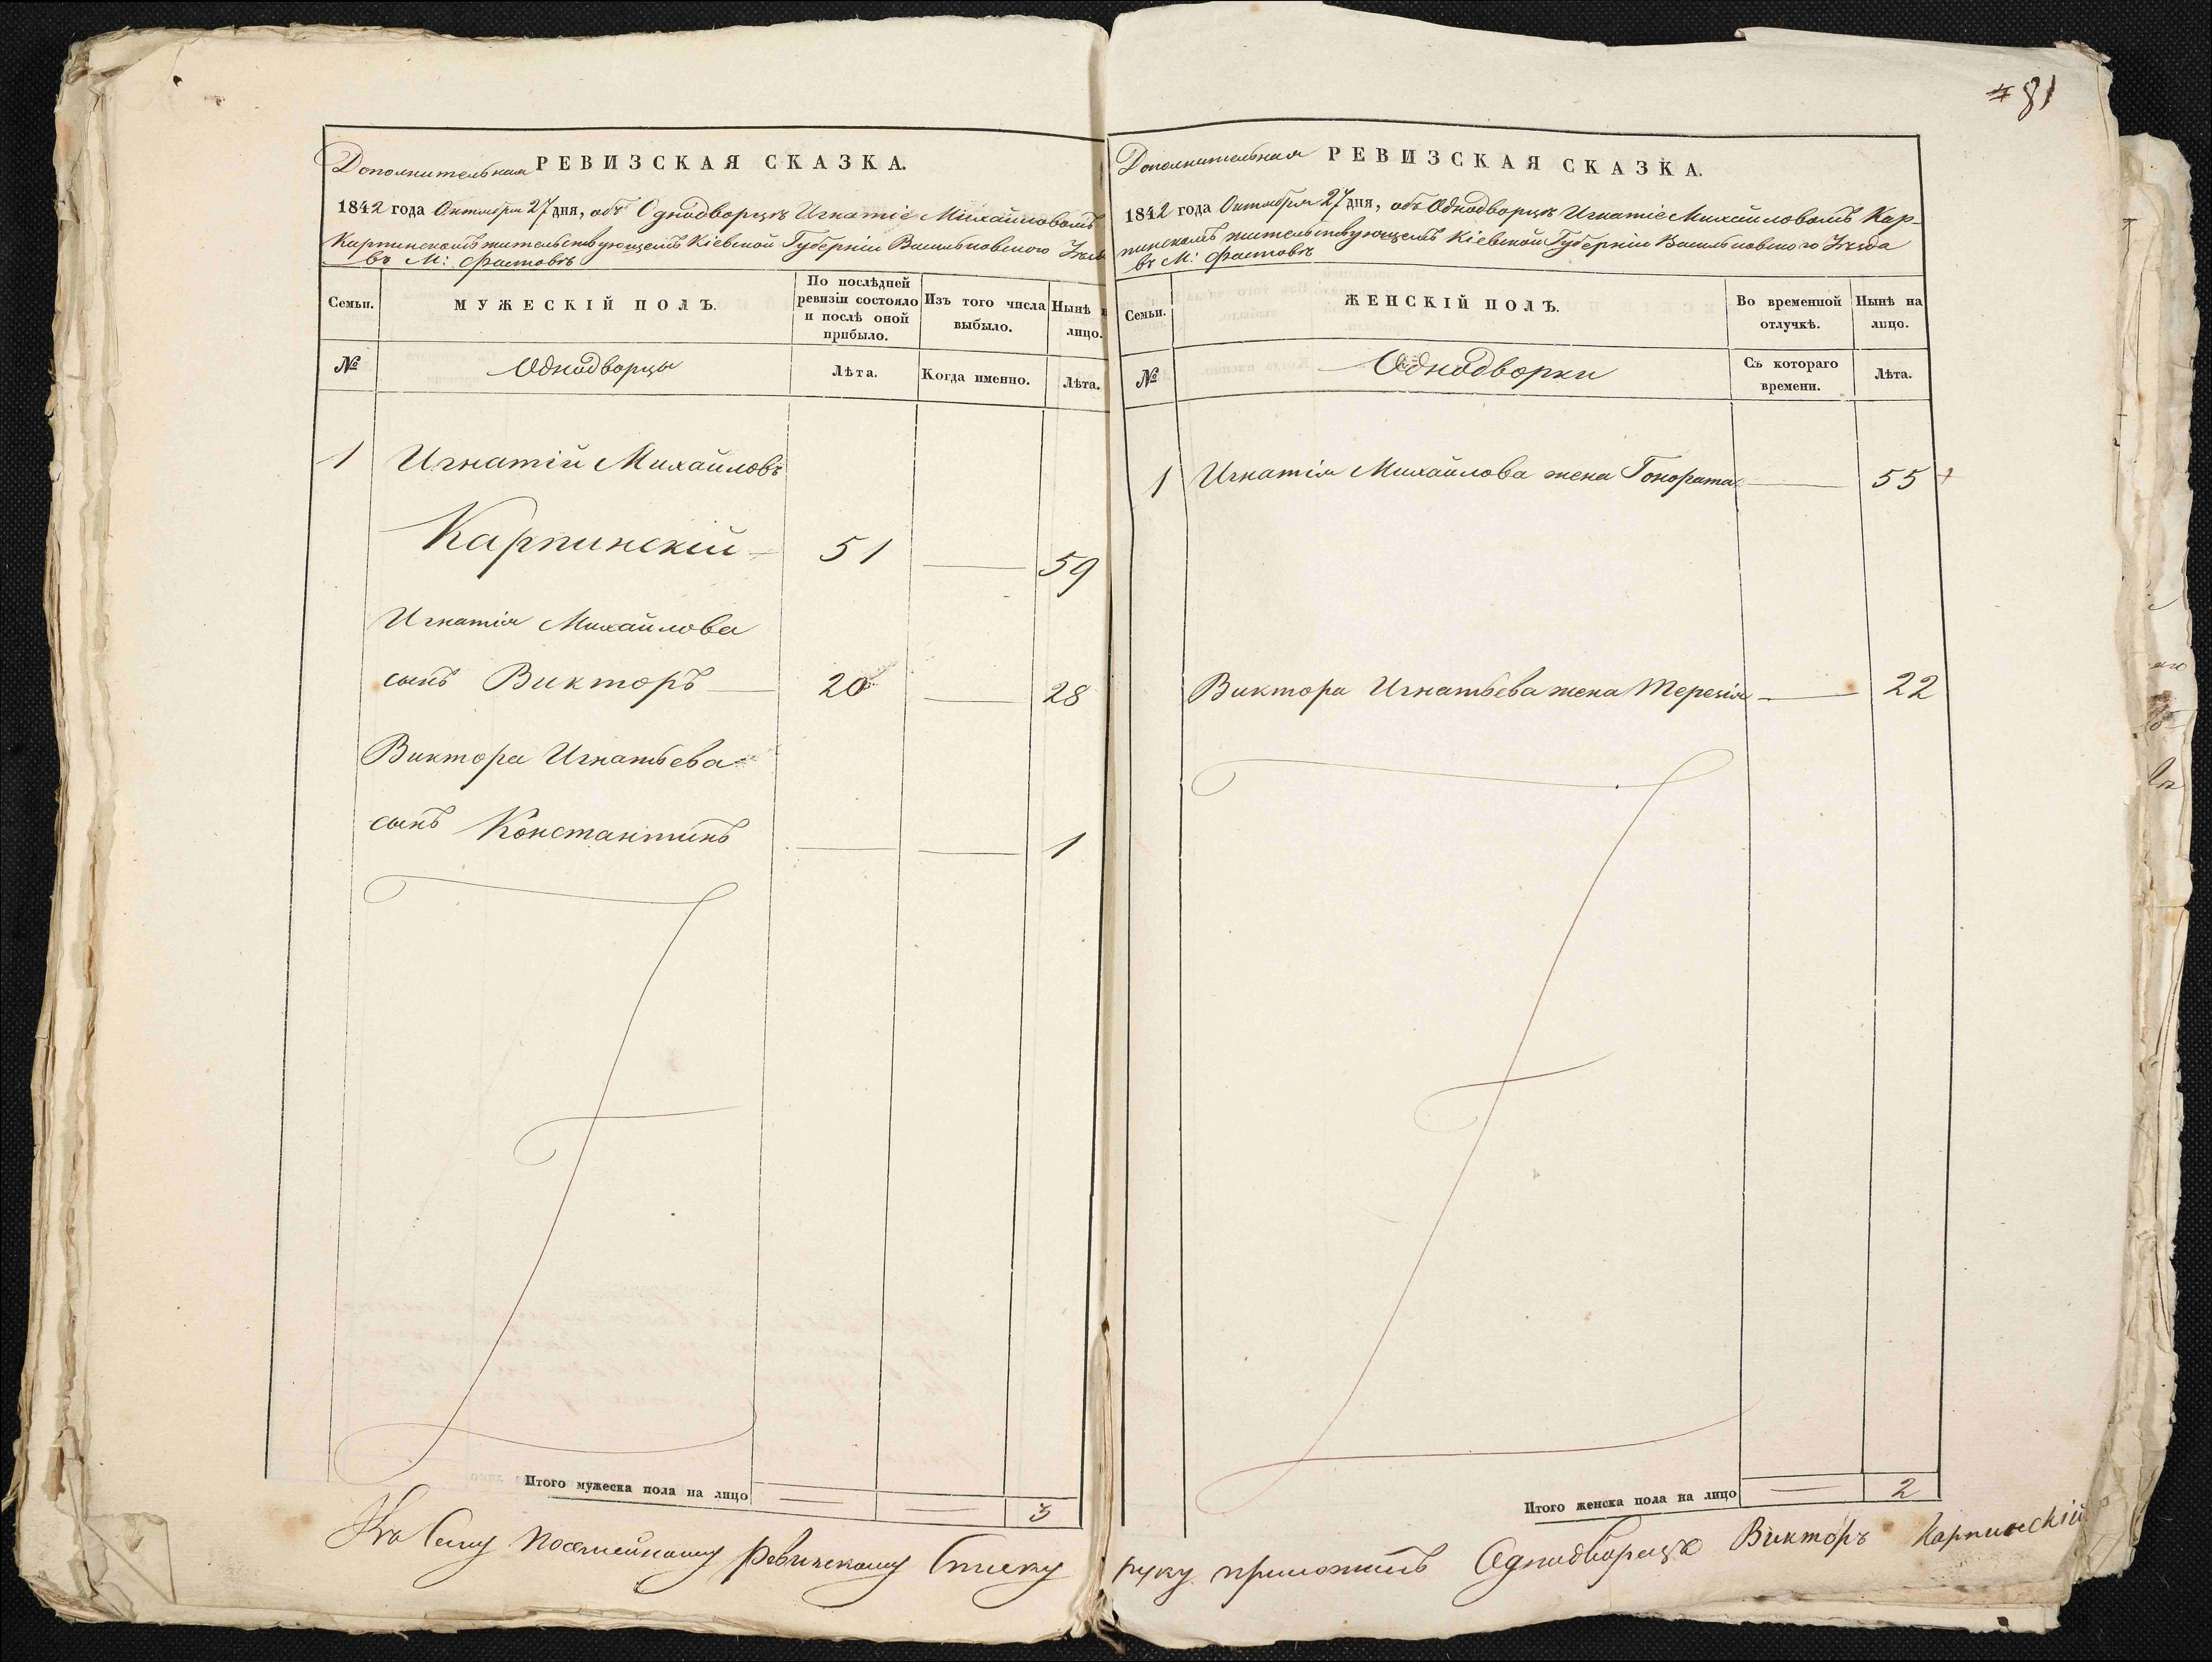 81
Дополнительная РЕВИЗСКАЯ СКАЗКА.
1842 года Октября 27 дня, объ Однодворцѣ Игнатіе Михайловомъ
Карпинскомъ жительствующемъ Кіевской Губерніи Васильковского Уѣзда
въ М: Фастовѣ
Семьи.
МУЖЕСКІЙ ПОЛЪ.
По послѣдней
ревизіи состояло
и послѣ оной
прибыло.
Изъ того числа
выбыло.
Нынѣ на
лицо.
№
Однодворцы
Лѣта.
Когда именно.
Лѣта.
1 Игнатій Михайловъ
Карпинскій — 51 — 59
Игнатія Михайлова
сынъ Викторъ — 20 — 28
Виктора Игнатьева
сынъ Константинъ — — 1
Итого мужеска пола на лицо — — 3
Къ Сему Посемейному Ревизскому Списку
Дополнительная РЕВИЗСКАЯ СКАЗКА.
1842 года Октября 27 дня, объ Однодворцѣ Игнатіе Михайловомъ Кар-
пинскомъ жительствующемъ Кіевской Губерніи Васильковского Уѣзда
въ М: Фастовѣ
Семьи.
ЖЕНСКІЙ ПОЛЪ.
Во временной
отлучкѣ.
Нынѣ на
лицо.
№
Однодворки
Съ котораго
времени.
Лѣта.
1 Игнатія Михайлова жена Гонората — 55
Виктора Игнатьева жена Терезія — 22
Итого женска пола на лицо — 2
руку приложилъ Однодворецъ Викторъ Карпинскій